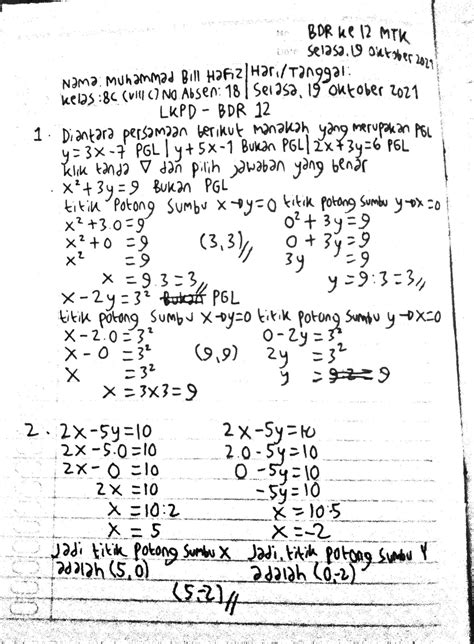 No. BDR ke 12 MTK
Date Selasa, 19 oktober 2021
Nama: Muhammad Bill Hafiz | Hari/Tanggal:
kelas :8C (VIII C) No Absen: 18 | Selasa, 19 oktober 2021
LKPD - BDR 12
1. Diantara persamaan berikut manakah yang merupakan PGL
y=3x-7 PGL | y+5x-1 Bukan PGL | 2x+3y=6 PGL
klik tanda ∇ dan pilih jawaban yang benar
x²+3y=9 Bukan PGL
titik Potong Sumbu x→y=0 titik potong sumbu y→x=0
x²+3.0=9 0²+3y=9
x²+0 =9 (3,3)// 0+3y=9
x² =9 3y =9
x =9.3=3// y=9:3=3//
x-2y=3² Bukan PGL
titik potong Sumbu x→y=0 titik potong Sumbu y→x=0
x-2.0=3² 0-2y=3²
x-0 =3² (9,9) 2y =3²
x =3² y =9:2= 9
x =3x3=9
2. 2x-5y=10 2x-5y=10
2x-5.0=10 2.0-5y=10
2x-0 =10 0-5y=10
2x =10 -5y=10
x =10:2 x=10.5
x = 5 x=-2
Jadi titik Potong Sumbu X Jadi, titik potong sumbu Y
adalah (5,0) adalah (0,-2)
(5,-2)//